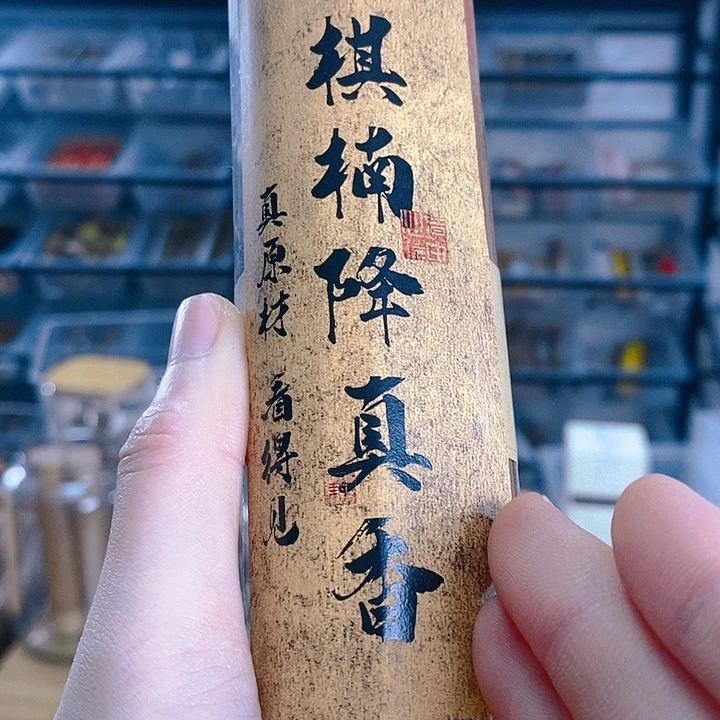 棋楠降真香
真原材 看得见